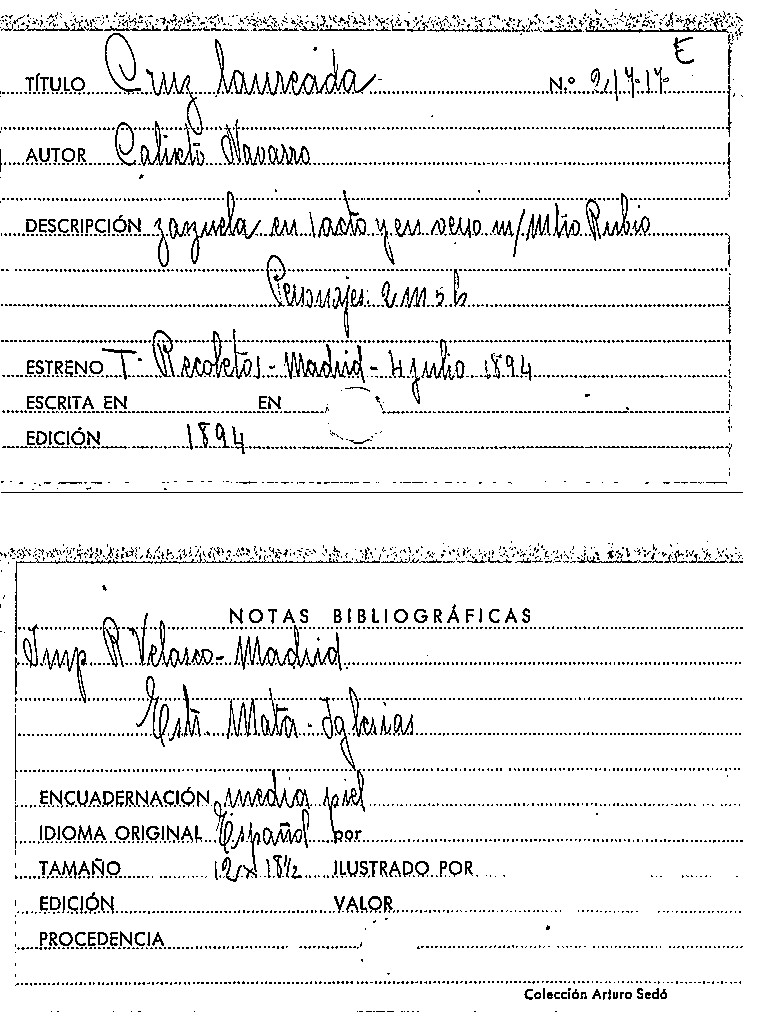 E
TÍTULO Cruz laureada N.º 2/7-17-
AUTOR Calixto Navarro
DESCRIPCIÓN zazuela en 1 acto y en verso m/ Mtro Rubio
Personajes: 2 m 5 h
ESTRENO T. Recoletos - Madrid - 4 julio 1894
ESCRITA EN EN
EDICIÓN 1894
NOTAS BIBLIOGRÁFICAS
Imp R Velasco - Madrid
Estr. Mata - Iglesias
ENCUADERNACIÓN media piel
IDIOMA ORIGINAL Español por
TAMAÑO 12 x 18½ ILUSTRADO POR
EDICIÓN VALOR
PROCEDENCIA
Colección Arturo Sedó